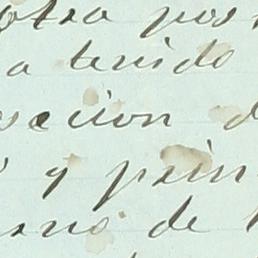 otra pos
a tenido
secion d
y prin
ano de